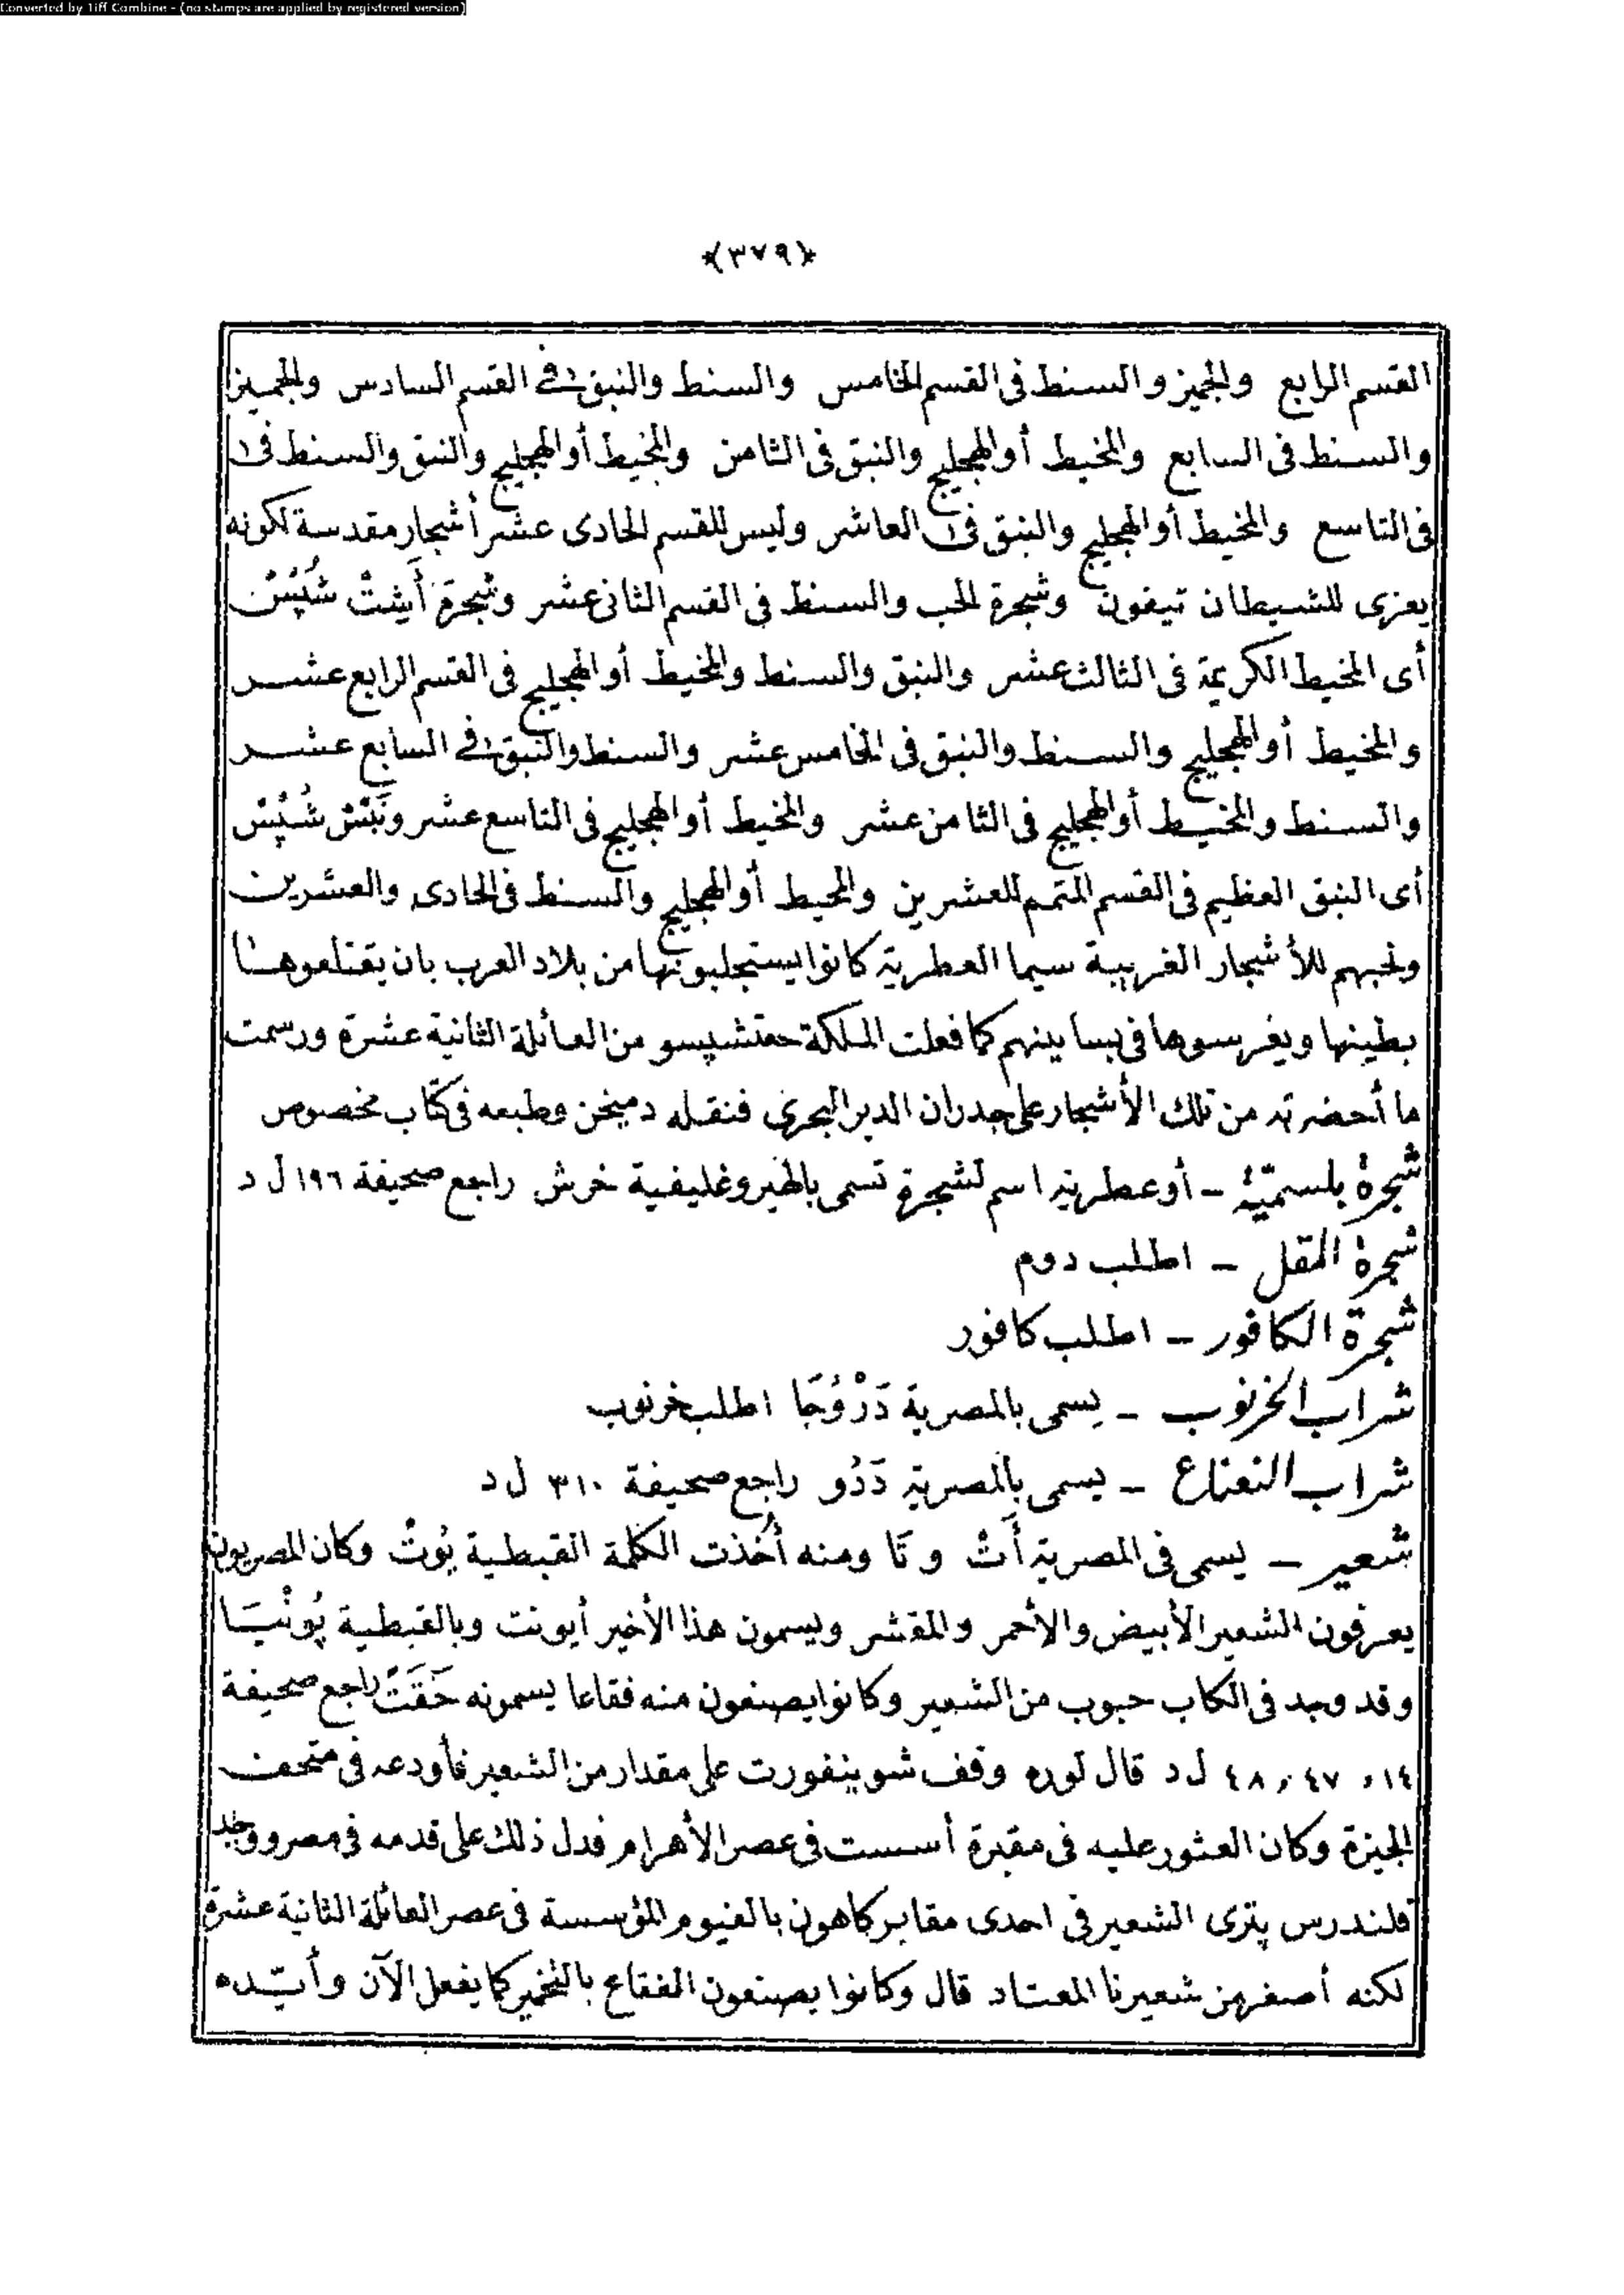 Converted by Tiff Combine - (no stamps are applied by registered version)
﴿٣٧٩﴾
القسم الرابع والجميز والسنط فى القسم الخامس والسنط والنبق فى القسم السادس والجميز
والسنط فى السابع والمخيط أو الهجليج والنبق فى الثامن والمخيط أو الهجليج والنبق والسنط فى
فى التاسع والمخيط أو الهجليج والنبق فى العاشر وليس للقسم الحادى عشر أشجار مقدسة لكونه
يعزى للشيطان تيفون وشجرة الحب والسنط فى القسم الثانى عشر وشجرة أَشِتْ شُپْسْ
أى المخيط الكريمة فى الثالث عشر والنبق والسنط والمخيط أو الهجليج فى القسم الرابع عشر
والمخيط أو الهجليج والسنط والنبق فى الخامس عشر والسنط والنبق فى السابع عشر
والسنط والمخيط أو الهجليج فى الثامن عشر والمخيط أو الهجليج فى التاسع عشر ونَبْسْ شُپْسْ
أى النبق العظيم فى القسم المتمم للعشرين والمخيط أو الهجليج والسنط فى الحادى والعشرين
ولحبهم للأشجار الغريبة سيما العطرية كانوا يستجلبونها من بلاد العرب بان يقتلعوها
بطينها ويغرسوها فى بساتينهم كما فعلت الملكة حعتشپسو من العائلة الثانية عشرة ورسمت
ما أحضرته من تلك الأشجار على جدران الدير البحرى فنقله دميخن وطبعه فى كتاب مخصوص
شجرة بلسميّة - أو عطرية اسم لشجرة تسمى بالهيروغليفية خرش راجع صحيفة ١٩٦ ل د
شجرة المقل - اطلب دوم
شجرة الكافور - اطلب كافور
شراب الخرنوب - يسمى بالمصرية دَرْوُجَا اطلب خرنوب
شراب النعناع - يسمى بالمصرية دَدُو راجع صحيفة ٣١٠ ل د
شعير - يسمى فى المصرية أَتْ و تَا ومنه أُخذت الكلمة القبطية يُوتْ وكان المصريون
يعرفون الشعير الأبيض والأحمر والمقشر ويسمون هذا الأخير أيونت وبالقبطية يُونْتِيَا
وقد وجد فى الكاب حبوب من الشعير وكانوا يصنعون منه فقاعا يسمونه حَقَتْ راجع صحيفة
١٤, ٤٧, ٤٨ ل د قال لوره وقف شوينفورت على مقدار من الشعير فأودعه فى متحف
الجيزة وكان العثور عليه فى مقبرة أسست فى عصر الأهرام فدل ذلك على قدمه فى مصر ووجد
فلندرس پترى الشعير فى احدى مقابر كاهون بالفيوم المؤسسة فى عصر العائلة الثانية عشرة
لكنه أصغر من شعيرنا المعتاد قال وكانوا يصنعون الفقاع بالتخمير كما يفعل الآن وأيّده